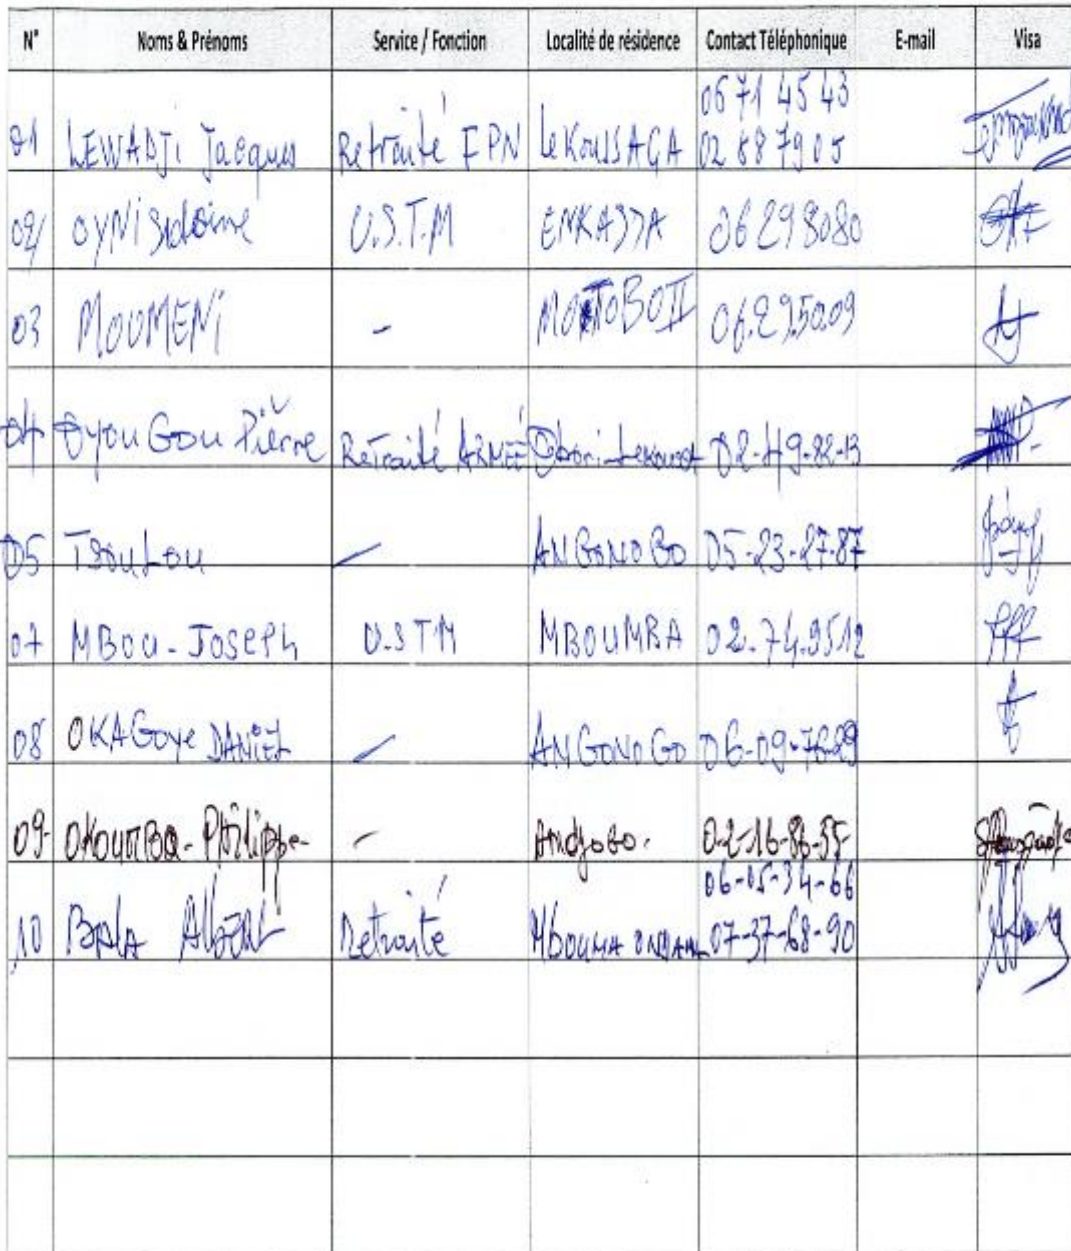 N° Noms & Prénoms Service / Fonction Localité de résidence Contact Téléphonique E-mail Visa
06 71 45 43
01 LEWADJi Jacques Retraité FPN LeKOUSSAGA 02 88 79 05
02/ OYNi Sidoine U.S.T.M ENKASSA 06298080
03 MOUMENi - MOTOBOII 06.295009
04 OyouGou Pièrre Retraité ARMÉE 02-49-82-13
05 TsouLou - ANGONOGO 05-23-27-87
07 MBOU-JOSEPh U.S TM MBOUMBA 02.74.9512
08 OKAGoye DANiEL - ANGONOGO 06-09-76-29
09- OKOUMBA-Philippe- - Andjogo. 02-16-86-55-
06-05-34-66
10 BALA Albert Retraité MbOUMA 07-37-68-90